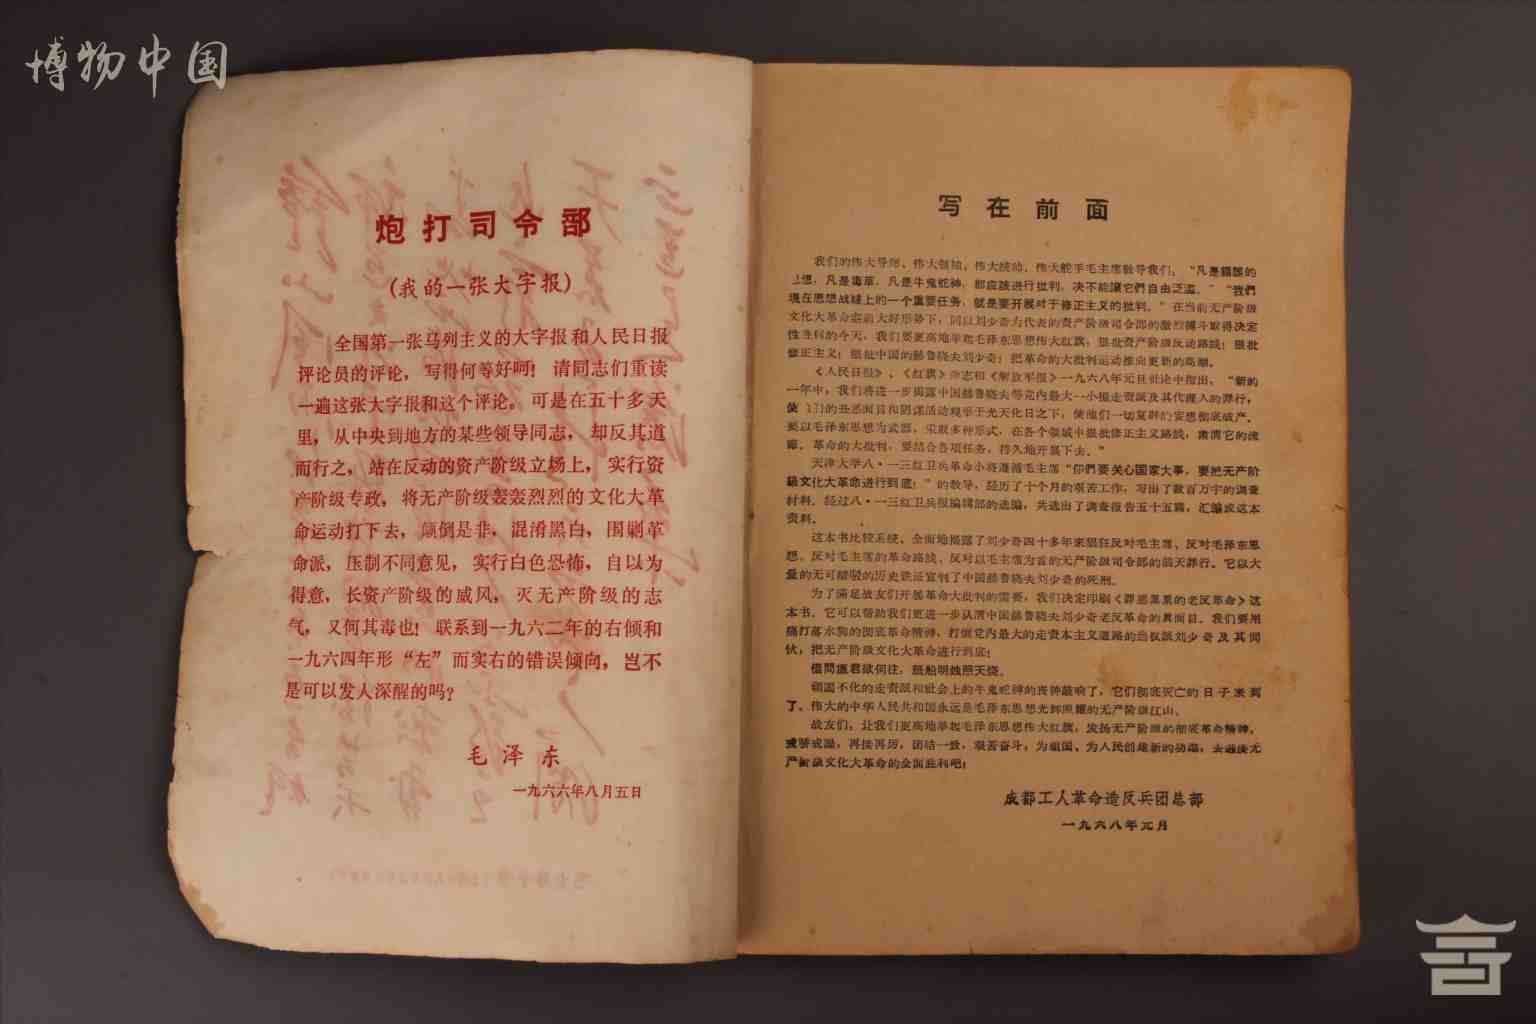 博物中国
炮打司令部
（我的一张大字报）
全国第一张马列主义的大字报和人民日报
评论员的评论，写得何等好呵！请同志们重读
一遍这张大字报和这个评论。可是在五十多天
里，从中央到地方的某些领导同志，却反其道
而行之，站在反动的资产阶级立场上，实行资
产阶级专政，将无产阶级轰轰烈烈的文化大革
命运动打下去，颠倒是非，混淆黑白，围剿革
命派，压制不同意见，实行白色恐怖，自以为
得意，长资产阶级的威风，灭无产阶级的志
气，又何其毒也！联系到一九六二年的右倾和
一九六四年形“左”而实右的错误倾向，岂不
是可以发人深醒的吗？
毛泽东
一九六六年八月五日
写在前面
我们的伟大导师、伟大领袖、伟大统帅、伟大舵手毛主席教导我们：“凡是错误的
思想，凡是毒草，凡是牛鬼蛇神，都应该进行批判，决不能讓它們自由泛滥。”“我們
現在思想战綫上的一个重要任务，就是要开展对于修正主义的批判。”在当前无产阶级
文化大革命空前大好形势下，同以刘少奇为代表的资产阶级司令部的激烈搏斗取得决定
性胜利的今天，我们要更高地举起毛泽东思想伟大红旗，狠批资产阶级反动路线！狠批
修正主义！狠批中国的赫鲁晓夫刘少奇！把革命的大批判运动推向更新的高潮。
《人民日报》、《红旗》杂志和《解放军报》一九六八年元旦社论中指出，“新的
一年中，我们将进一步揭露中国赫鲁晓夫等党内最大一小撮走资派及其代理人的罪行，
使 们的丑恶面目和阴谋活动暴露于光天化日之下，使他们一切复辟的妄想彻底破产。
要以毛泽东思想为武器，采取多种形式，在各个领域中狠批修正主义路线，肃清它的流
毒。革命的大批判，要结合各项任务，持久地开展下去。”
天津大学八·一三红卫兵革命小将遵循毛主席“你們要关心国家大事，要把无产阶
級文化大革命进行到底！”的教导，经历了十个月的艰苦工作，写出了数百万字的调查
材料。经过八·一三红卫兵报编辑部的选编，共选出了调查报告五十五篇，汇编成这本
资料。
这本书比较系统、全面地揭露了刘少奇四十多年来猖狂反对毛主席、反对毛泽东思
想、反对毛主席的革命路线、反对以毛主席为首的无产阶级司令部的滔天罪行。它以大
量的无可辩驳的历史铁证宣判了中国赫鲁晓夫刘少奇的死刑。
为了满足战友们开展革命大批判的需要，我们决定印刷《罪恶累累的老反革命》这
本书。它可以帮助我们更进一步认清中国赫鲁晓夫刘少奇老反革命的真面目。我们要用
痛打落水狗的彻底革命精神，打倒党内最大的走资本主义道路的当权派刘少奇及其同
伙，把无产阶级文化大革命进行到底！
借問瘟君欲何往，纸船明烛照天烧。
顽固不化的走资派和社会上的牛鬼蛇神的丧钟敲响了，它们彻底灭亡的日子来到
了。伟大的中华人民共和国永远是毛泽东思想光辉照耀的无产阶级江山。
战友们，让我们更高地举起毛泽东思想伟大红旗，发扬无产阶级的彻底革命精神，
戒骄戒躁，再接再厉，团结一致，艰苦奋斗，为祖国、为人民创建新的功勋，去迎接无
产阶级文化大革命的全面胜利吧！
成都工人革命造反兵团总部
一九六八年元月